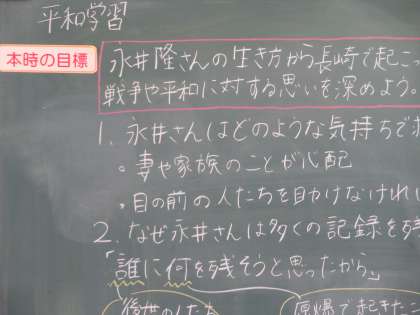 平和学習
本時の目標
永井隆さんの生き方から長崎で起こっ
戦争や平和に対する思いを深めよう。
1. 永井さんはどのような気持ちで
。妻や家族のことが心配
。目の前の人たちを助けなければ
2. なぜ永井さんは多くの記録を残
「誰に何を残そうと思ったから」
後世の人たち
原爆で起きたこ